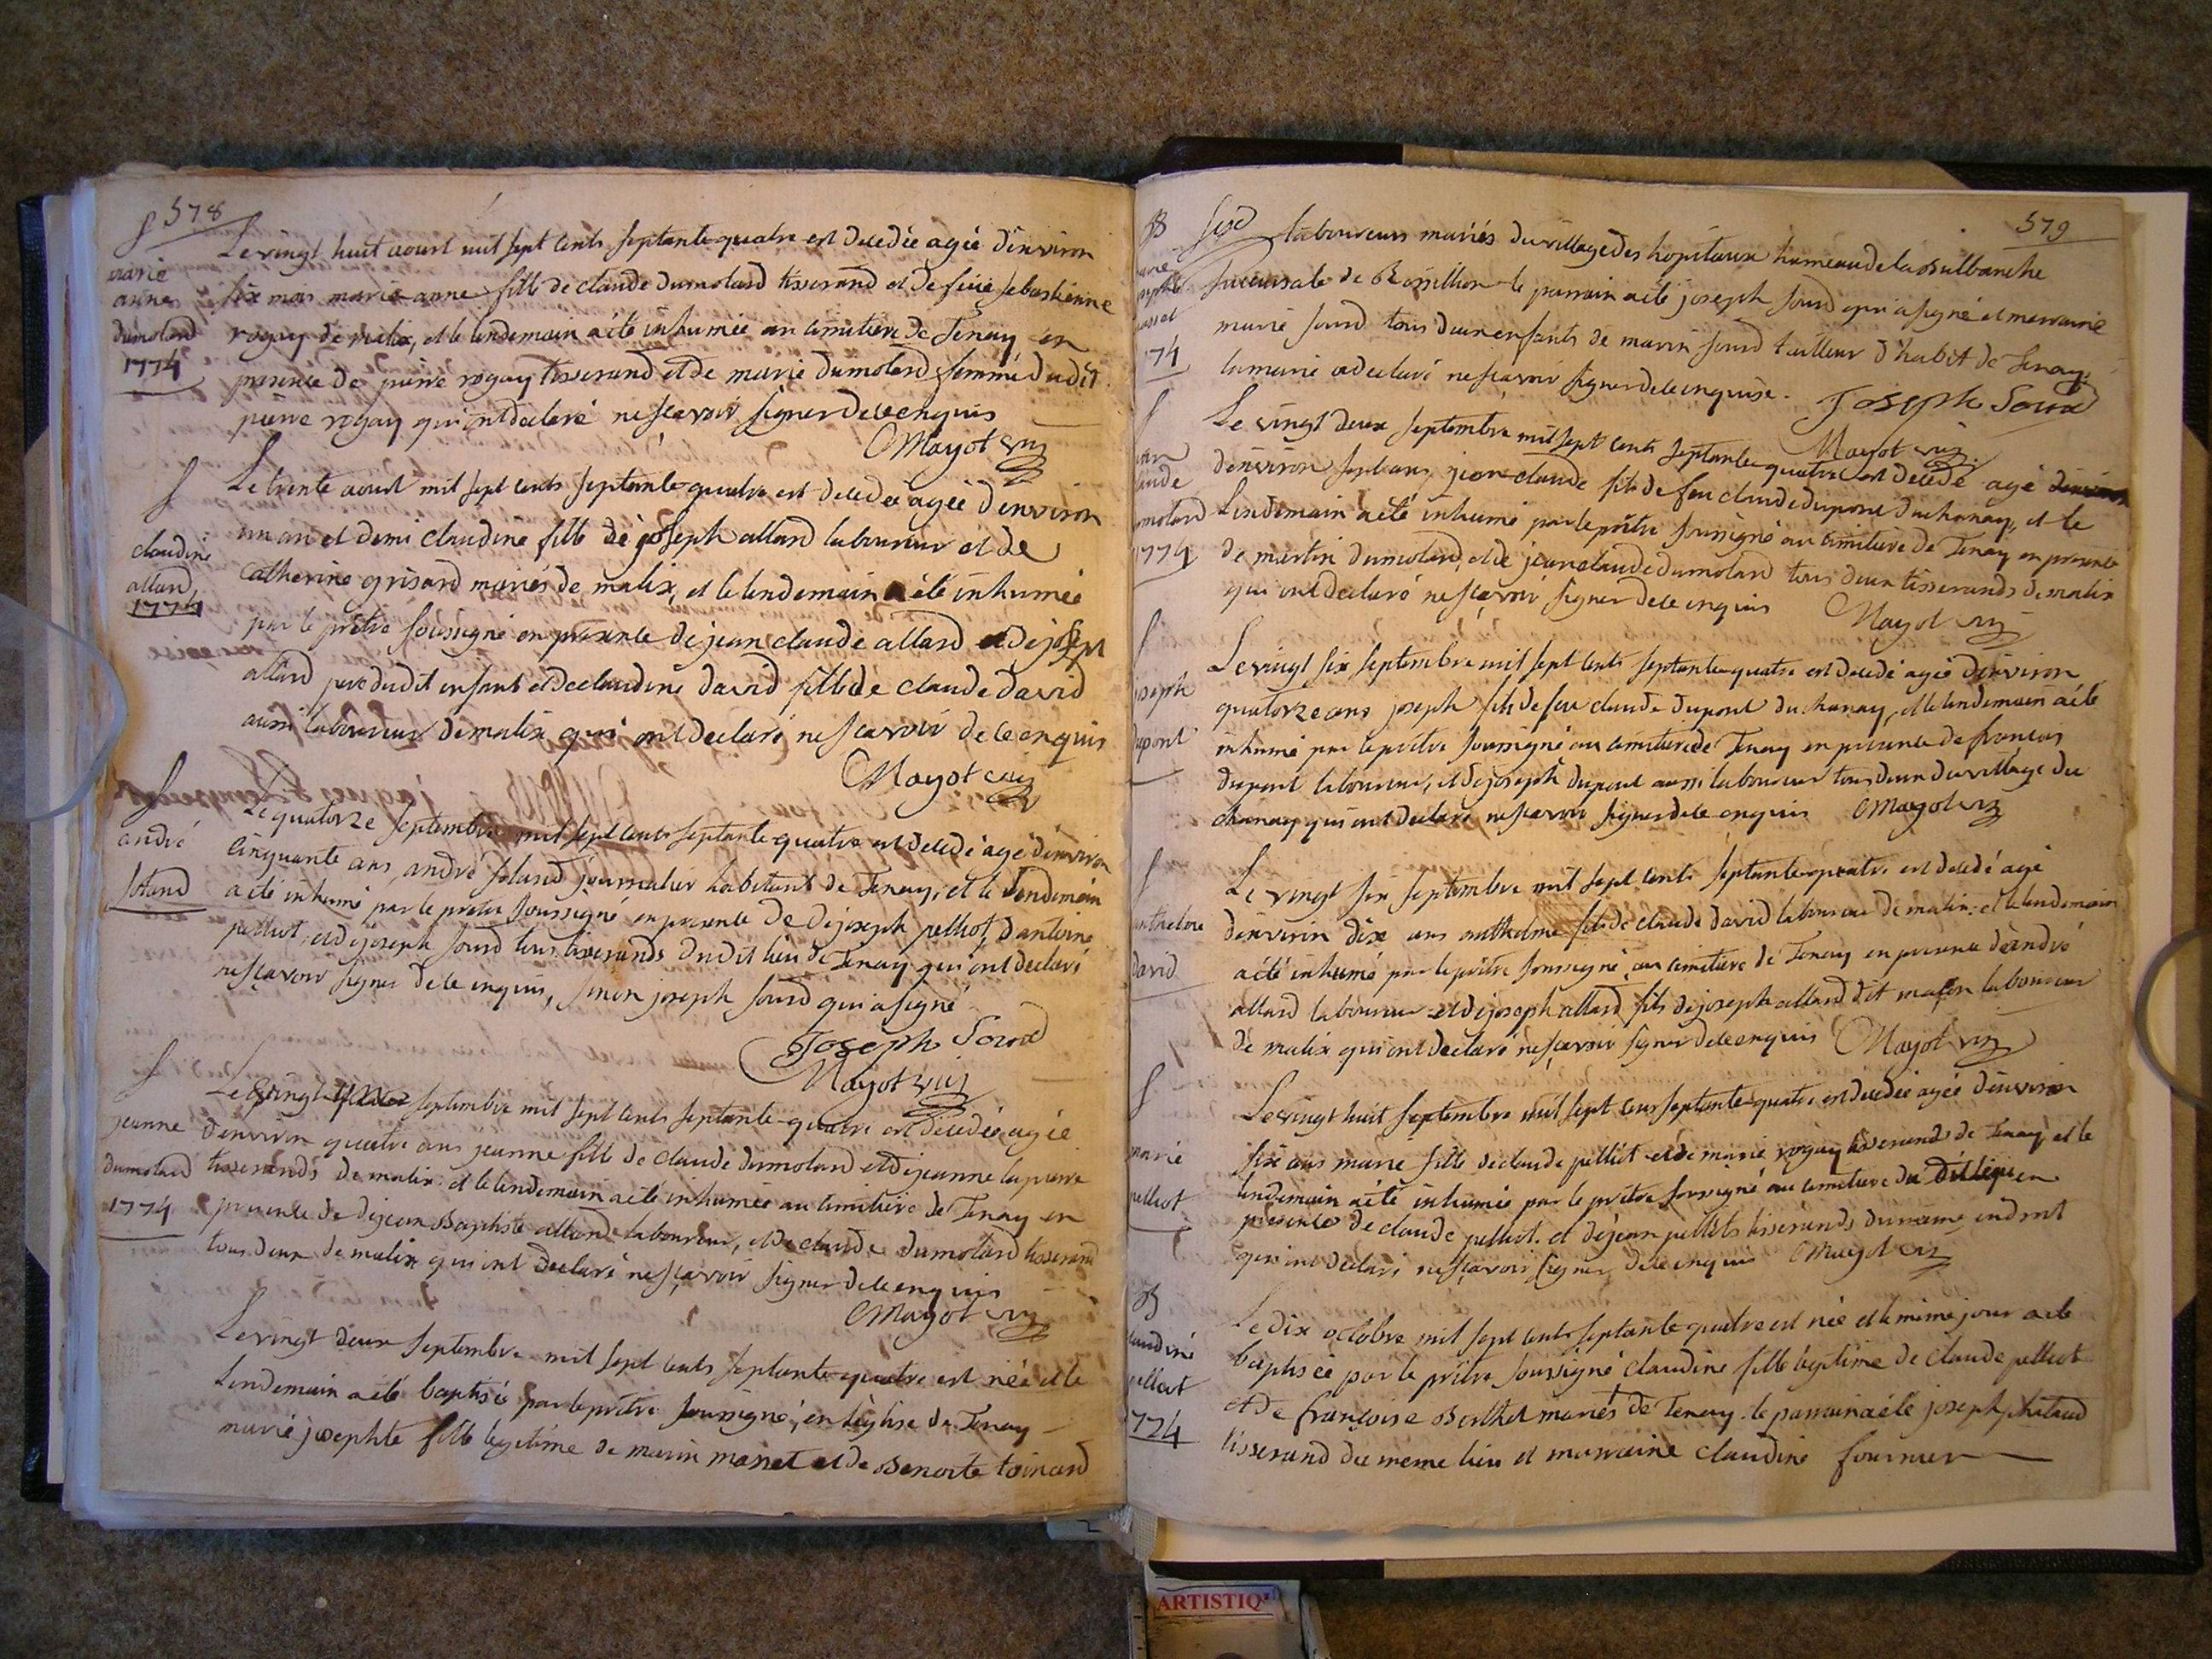 578
S
marie
anne
dumolard
1774
Le vingt huit aoust mil sept cents septante quatre est decedée agée d'environ
six mois marie anne fille de claude dumolard tisserand et de feüe sebastienne
rogay de malix, et le lendemain a été inhumée au cimetiere de Tenay en
presence de pierre rogay tisserand et de marie dumolard femme dudit
pierre rogay qui ont declaré ne sçavoir signer de ce enquis
Mayot vic
S
claudine
allard
1774
Le trente aoust mil sept cents septante quatre est decedée agée d'environ
un an et demi claudine fille de joseph allard laboureur et de
catherine grisard mariés de malix, et le lendemain a été inhumée
par le prêtre soussigné en presence de jean claude allard et de joseph
allard pere dudit enfant et de claudine david fille de claude david
aussi laboureur de malix qui ont declaré ne scavoir de ce enquis
Mayot vic
S
andré
Le quatorze septembre mil sept cents septante quatre est decedé agé d'environ
cinquante ans, andré journalier habitant de Tenay, et le lendemain
a été inhumé par le prêtre soussigné en presence de de joseph pelliot, d'antoine
pelliot, et de joseph sourd tous tisserands dudit lieu de Tenay qui ont declaré
ne sçavoir signer de ce enquis, sinon joseph sourd qui a signé
Joseph Sourd
Mayot vic
S
jeanne
dumolard
1774
Le vingt septembre mil sept cents septante quatre est decedée agée
d'environ quatre ans jeanne fille de claude dumolard et de jeanne lapierre
tisserands de malix et le lendemain a été inhumée au cimetiere de Tenay en
presence de de jean Baptiste allard laboureur, et de claude dumolard tisserand
tous deux de malix qui ont declaré ne sçavoir signer de ce enquis
Mayot vic
Le vingt deux septembre mil sept cents septante quatre est née et le
lendemain a été baptisée par le prêtre soussigné, en l'eglise de Tenay
marie josephte fille legitime de marin et de Benoite toinard
579
B
74
laboureurs mariés du village des hopitaux hameau de la Bulbanche
succursale de Rossillion le parrain a été joseph sourd qui a signé et marraine
marie sourd tous deux enfants de marin sourd tailleur d'habit de Tenay,
la marie a declaré ne scavoir signer de ce enquise. Joseph Sourd
Mayot vic
S
1774
Le vingt deux septembre mil sept cents septante quatre est decedé agé
d'environ sept ans, jean claude fils de feu claude dupont du chanay, et le
lendemain a été inhumé par le prêtre soussigné au cimitiere de Tenay en presence
de martin dumolard, et de jean claude dumolard tous deux tisserands de malix
qui ont declaré ne sçavoir signer de ce enquis Mayot vic
S
joseph
dupont
Le vingt six septembre mil sept cents septante quatre est decedé agé d'environ
quatorze ans joseph fils de feu claude dupont du chanay, et le lendemain a été
inhumé par le prêtre soussigné au cimitiere de Tenay en presence de francois
dupont laboureur, et de joseph dupont aussi laboureur tous deux du village du
chanay qui ont declaré ne sçavoir signer de ce enquis Mayot vic
S
anthelme
david
Le vingt six septembre mil sept cents septante quatre est decedé agé
d'environ dix ans anthelme fils de claude david laboureur de malix, et le lendemain
a été inhumé par le prêtre soussigné au cimitiere de Tenay en presence d'andré
allard laboureur et de joseph allard fils de joseph allard dit maçon laboureur
de malix qui ont declaré ne sçavoir signer de ce enquis Mayot vic
S
marie
pelliot
Le vingt huit septembre mil sept cens septante quatre est decedée agée d'environ
six ans marie fille de claude pelliot et de marie rogay tisserands de Tenay et le
lendemain a été inhumée par le prêtre soussigné au cimetiere du en
presence de claude pelliot et de jean pelliot tisserands du meme endroit
qui ont declaré ne sçavoir signer de ce enquis Mayot vic
B
claudine
pelliot
1774
Le dix octobre mil sept cents septante quatre est née et le même jour a été
baptisée par le prêtre soussigné claudine fille legitime de claude pelliot
et de françoise Berthet mariés de Tenay. le parrain a été joseph
tisserand du meme lieu et marraine claudine fournier
ARTISTIQ